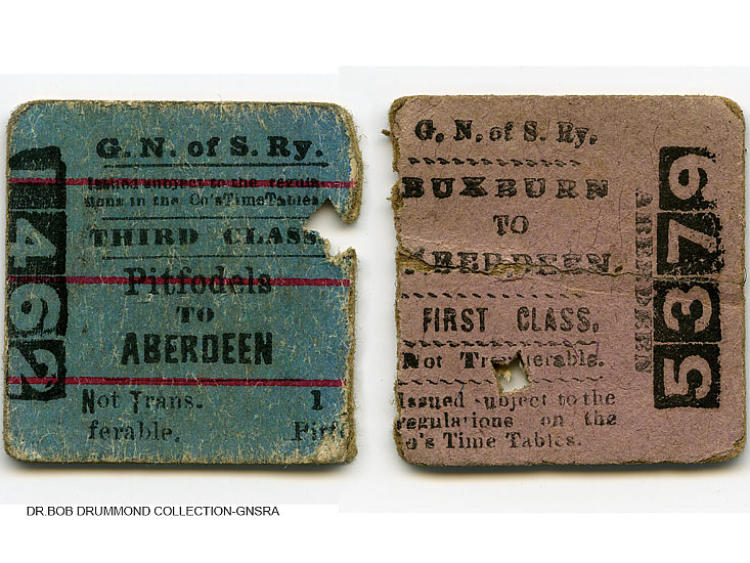 G. N. of S. Ry.
Issued subject to the regula
tions in the Co's Time Tables
THIRD CLASS
Pitfodels
TO
ABERDEEN
Not Trans. 1
ferable. Pitfo
G. N. of S. Ry.
BUXBURN
TO
ABERDEEN.
FIRST CLASS.
Not Transferable.
Issued subject to the
regulations on the
Co's Time Tables.
ABERDEEN
5379
DR.BOB DRUMMOND COLLECTION-GNSRA